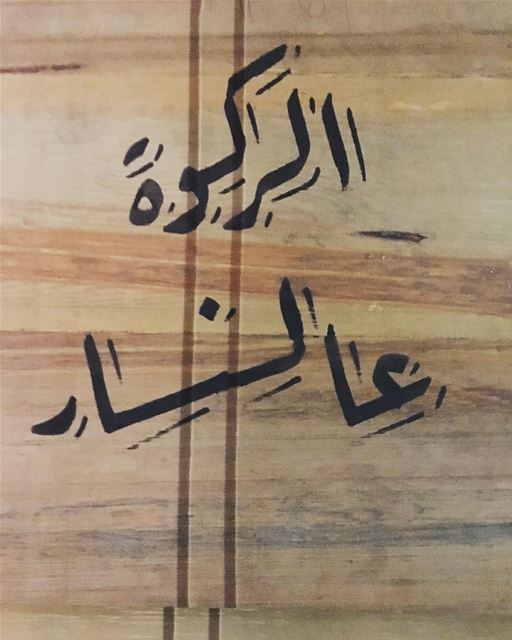 الركوة
عالنار